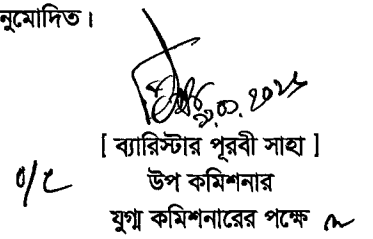 নুমোদিত।
[ ব্যারিস্টার পূরবী সাহা ]
o/c
উপ কমিশনার
যুগ্ম কমিশনারের পক্ষে